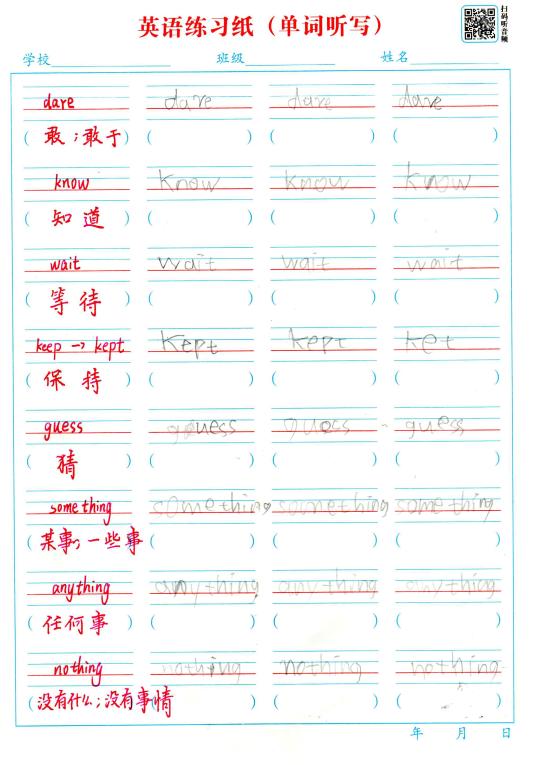 英语练习纸（单词听写） 扫码听音频
学校 班级 姓名
dare dare dare dare
（敢；敢于）（ ）（ ）（ ）
know know know know
（知道）（ ）（ ）（ ）
wait wait wait wait
（等待）（ ）（ ）（ ）
keep → kept kept kept ket
（保持）（ ）（ ）（ ）
guess guess guess
（猜）（ ）（ ）（ ）
something something something something
（某事；一些事（ ）（ ）（ ）
anything anything anything anything
（任何事）（ ）（ ）（ ）
nothing nothing nothing nothing
（没有什么；没有事情）（ ）（ ）
年 月 日